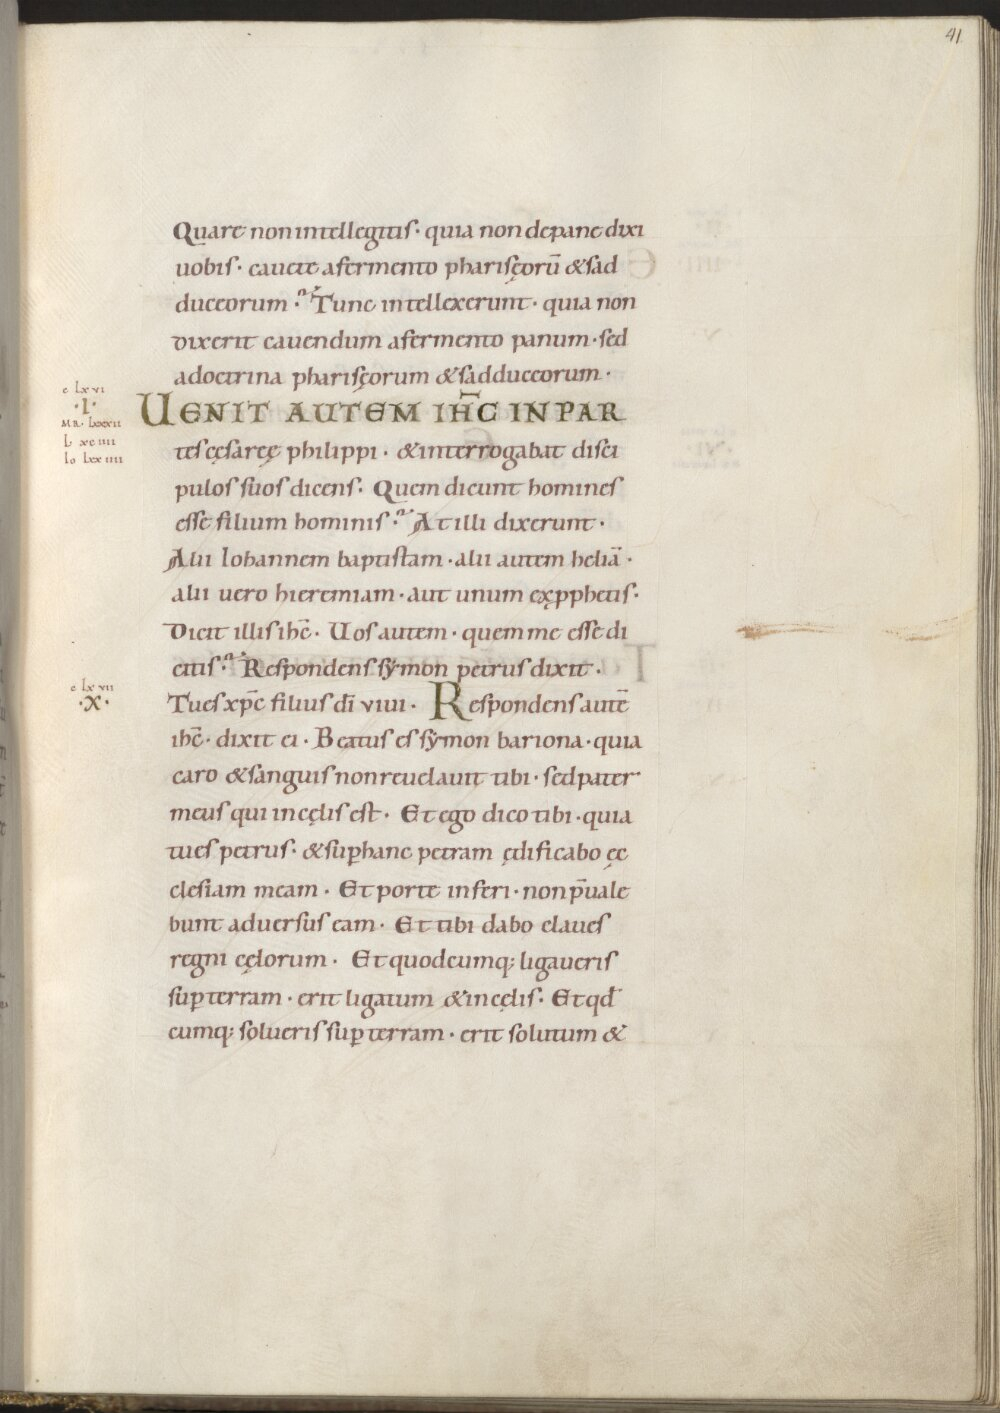 41
Quare non intellegitis · quia non depane dixi
uobis · cauete afermento pharisęorū &sad
duceorum · Tunc intellexerunt · quia non
dixerit cauendum afermento panum · sed
adoctrina pharisęorum &sadduceorum ·
c lxvi
·I·
MR · lxxxii
L xciiii
Io lxxiiii
UENIT AUTEM IH̄C IN PAR
tes cęsaręę philippi · &interrogabat disci
pulos suos dicens · Quem dicunt homines
esse filium hominis · At illi dixerunt ·
Alii Iohannem baptistam · alii autem heliā ·
alii uero hieremiam · aut unum exp̱phetis ·
Dicit illis ih̄c · Uos autem · quem me esse di
citis · Respondens sẏmon petrus dixit ·
c lxvii
·X·
Tu es xp̄c filius dī vivi · Respondens autē
ih̄c · dixit ei · Beatus es sẏmon bariona · quia
caro &sanguis non reuelauit tibi · sed pater
meus qui in cęlis est · Et ego dico tibi · quia
tu es petrus · &sup̱ hanc petram ędificabo ęc
clesiam meam · Et porte inferi · non p̄uale
bunt aduersus eam · Et tibi dabo claues
regni cęlorum · Et quodcumq; ligaueris
sup̱ terram · erit ligatum &in cęlis · Et qđ
cumq; solueris sup̱ terram · erit solutum &